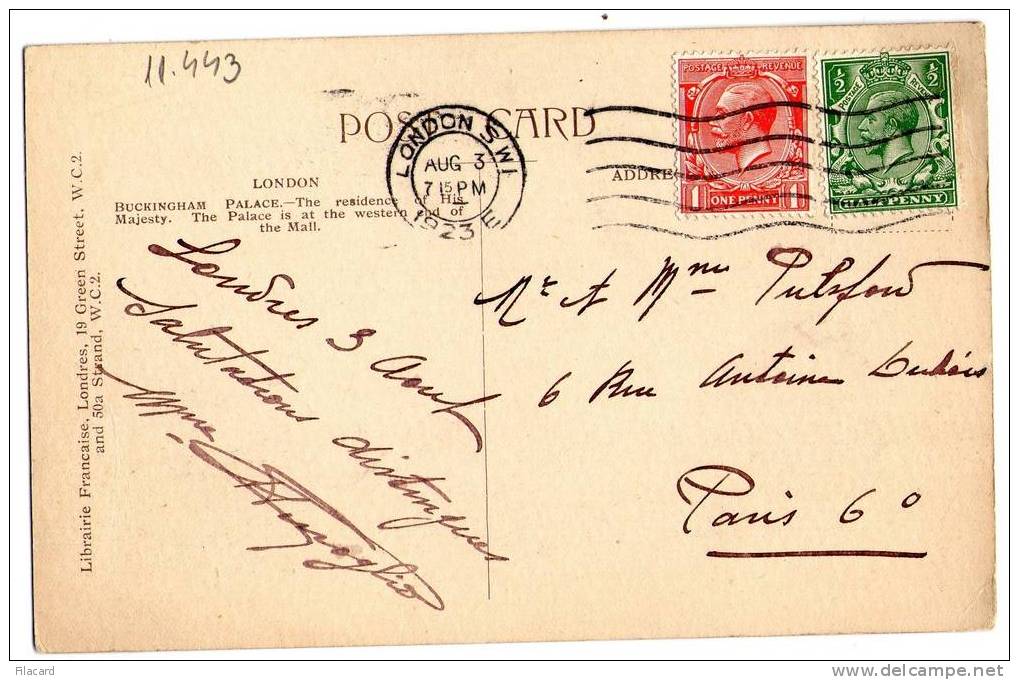 11.443
POST CARD
LONDON S.W.1
AUG 3
7 15 PM
1923
E
POSTAGE REVENUE
1 ONE PENNY 1
½ ½
POSTAGE REVENUE
HALF PENNY
ADDRE
LONDON
BUCKINGHAM PALACE.—The residence of His
Majesty. The Palace is at the western end of
the Mall.
Librairie Francaise, Londres, 19 Green Street, W.C.2.
and 50a Strand, W.C.2.
Londres 3 Aout
Salutations distingues
Mme
Mr & Mme
6 Rue Antoine Dubois
Paris 6º
Filacard
delcampe.net